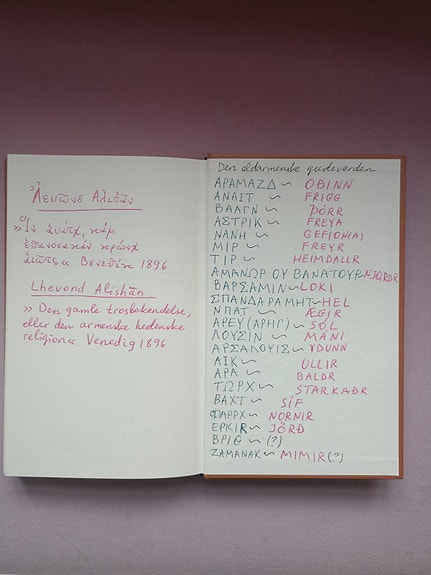 Lhevond Alishān
» Den gamle trosbekendelse,
eller den armenske hedenske
religion« Venedig 1896
Den oldarmenske gudeverden
ΑΡΑΜΑΖΔ ~ OÐINN
ΑΝΑΙΤ ~ FRIGG
ΒΑΑΓΝ ~ ÞÓRR
ΑΣΤΡΙΚ ~ FREYA
ΝΑΝΗ ~ GEFION(A)
ΜΙΡ ~ FREYR
ΤΙΡ ~ HEIMDALLR
ΑΜΑΝΩΡ ΟΥ ΒΑΝΑΤΟΥΡ~NJQRÐR
ΒΑΡΣΑΜΙΝ~LOKI
ΣΠΑΝΔΑΡΑΜΗΤ~HEL
ΝΠΑΤ ~ ÆGIR
ΑΡΕΥ(ΑΡΗΓ) ~ SÓL
ΛΟΥΣΙΝ ~ MÁNI
ΑΡΣΑΛΟΥΙΣ~YDUNN
ΑΙΚ ~ ULLIR
ΑΡΑ ~ BALDR
ΤΩΡΧ ~ STARKAÐR
ΒΑΧΤ ~ SÍF
ΦΑΡΡΧ~ NORNIR
ΕΡΚΙR~ JÖRÐ
ΒΡΙΘ ~ (?)
ΖΑΜΑΝΑΚ~MIMIR(?)